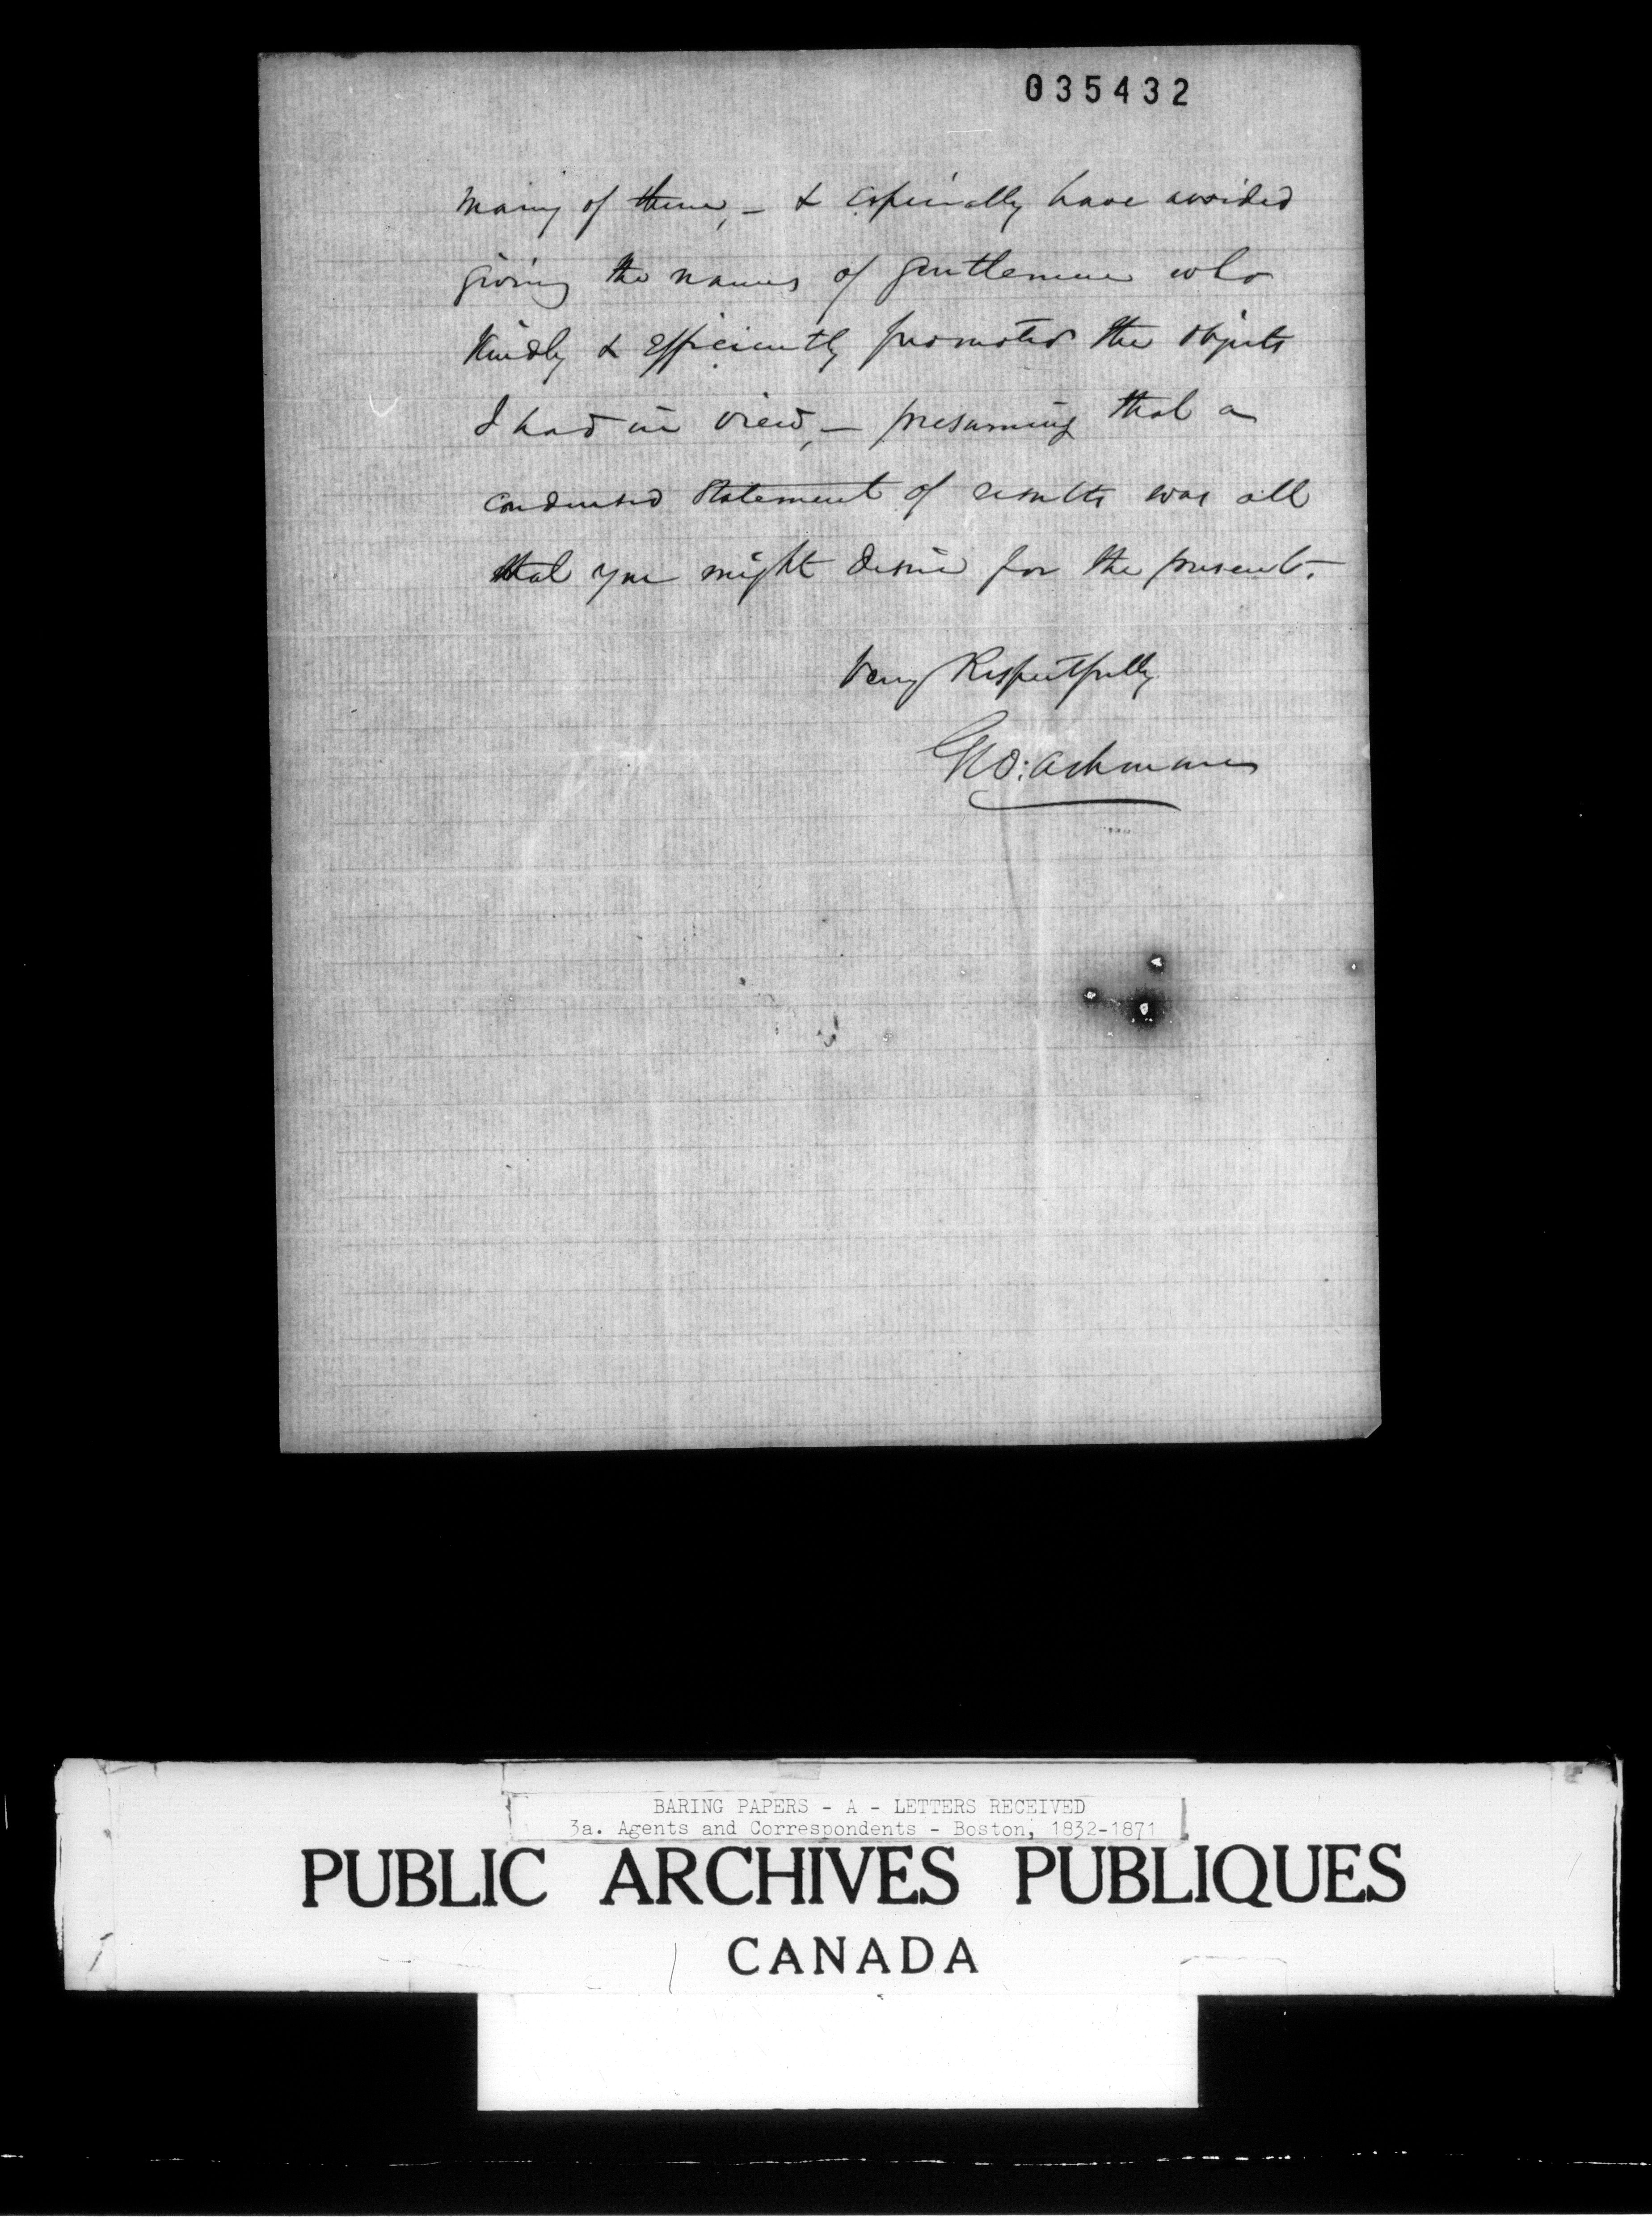 035432
many of them, – & especially have avoided
giving the names of gentlemen who
kindly & efficiently promoted the objects
I had in view, – presuming that a
condensed statement of results was all
that you might desire for the present.
Very Respectfully
Geo: Ashmun
BARING PAPERS - A - LETTERS RECEIVED
3a. Agents and Correspondents - Boston, 1832-1871
PUBLIC ARCHIVES PUBLIQUES
CANADA